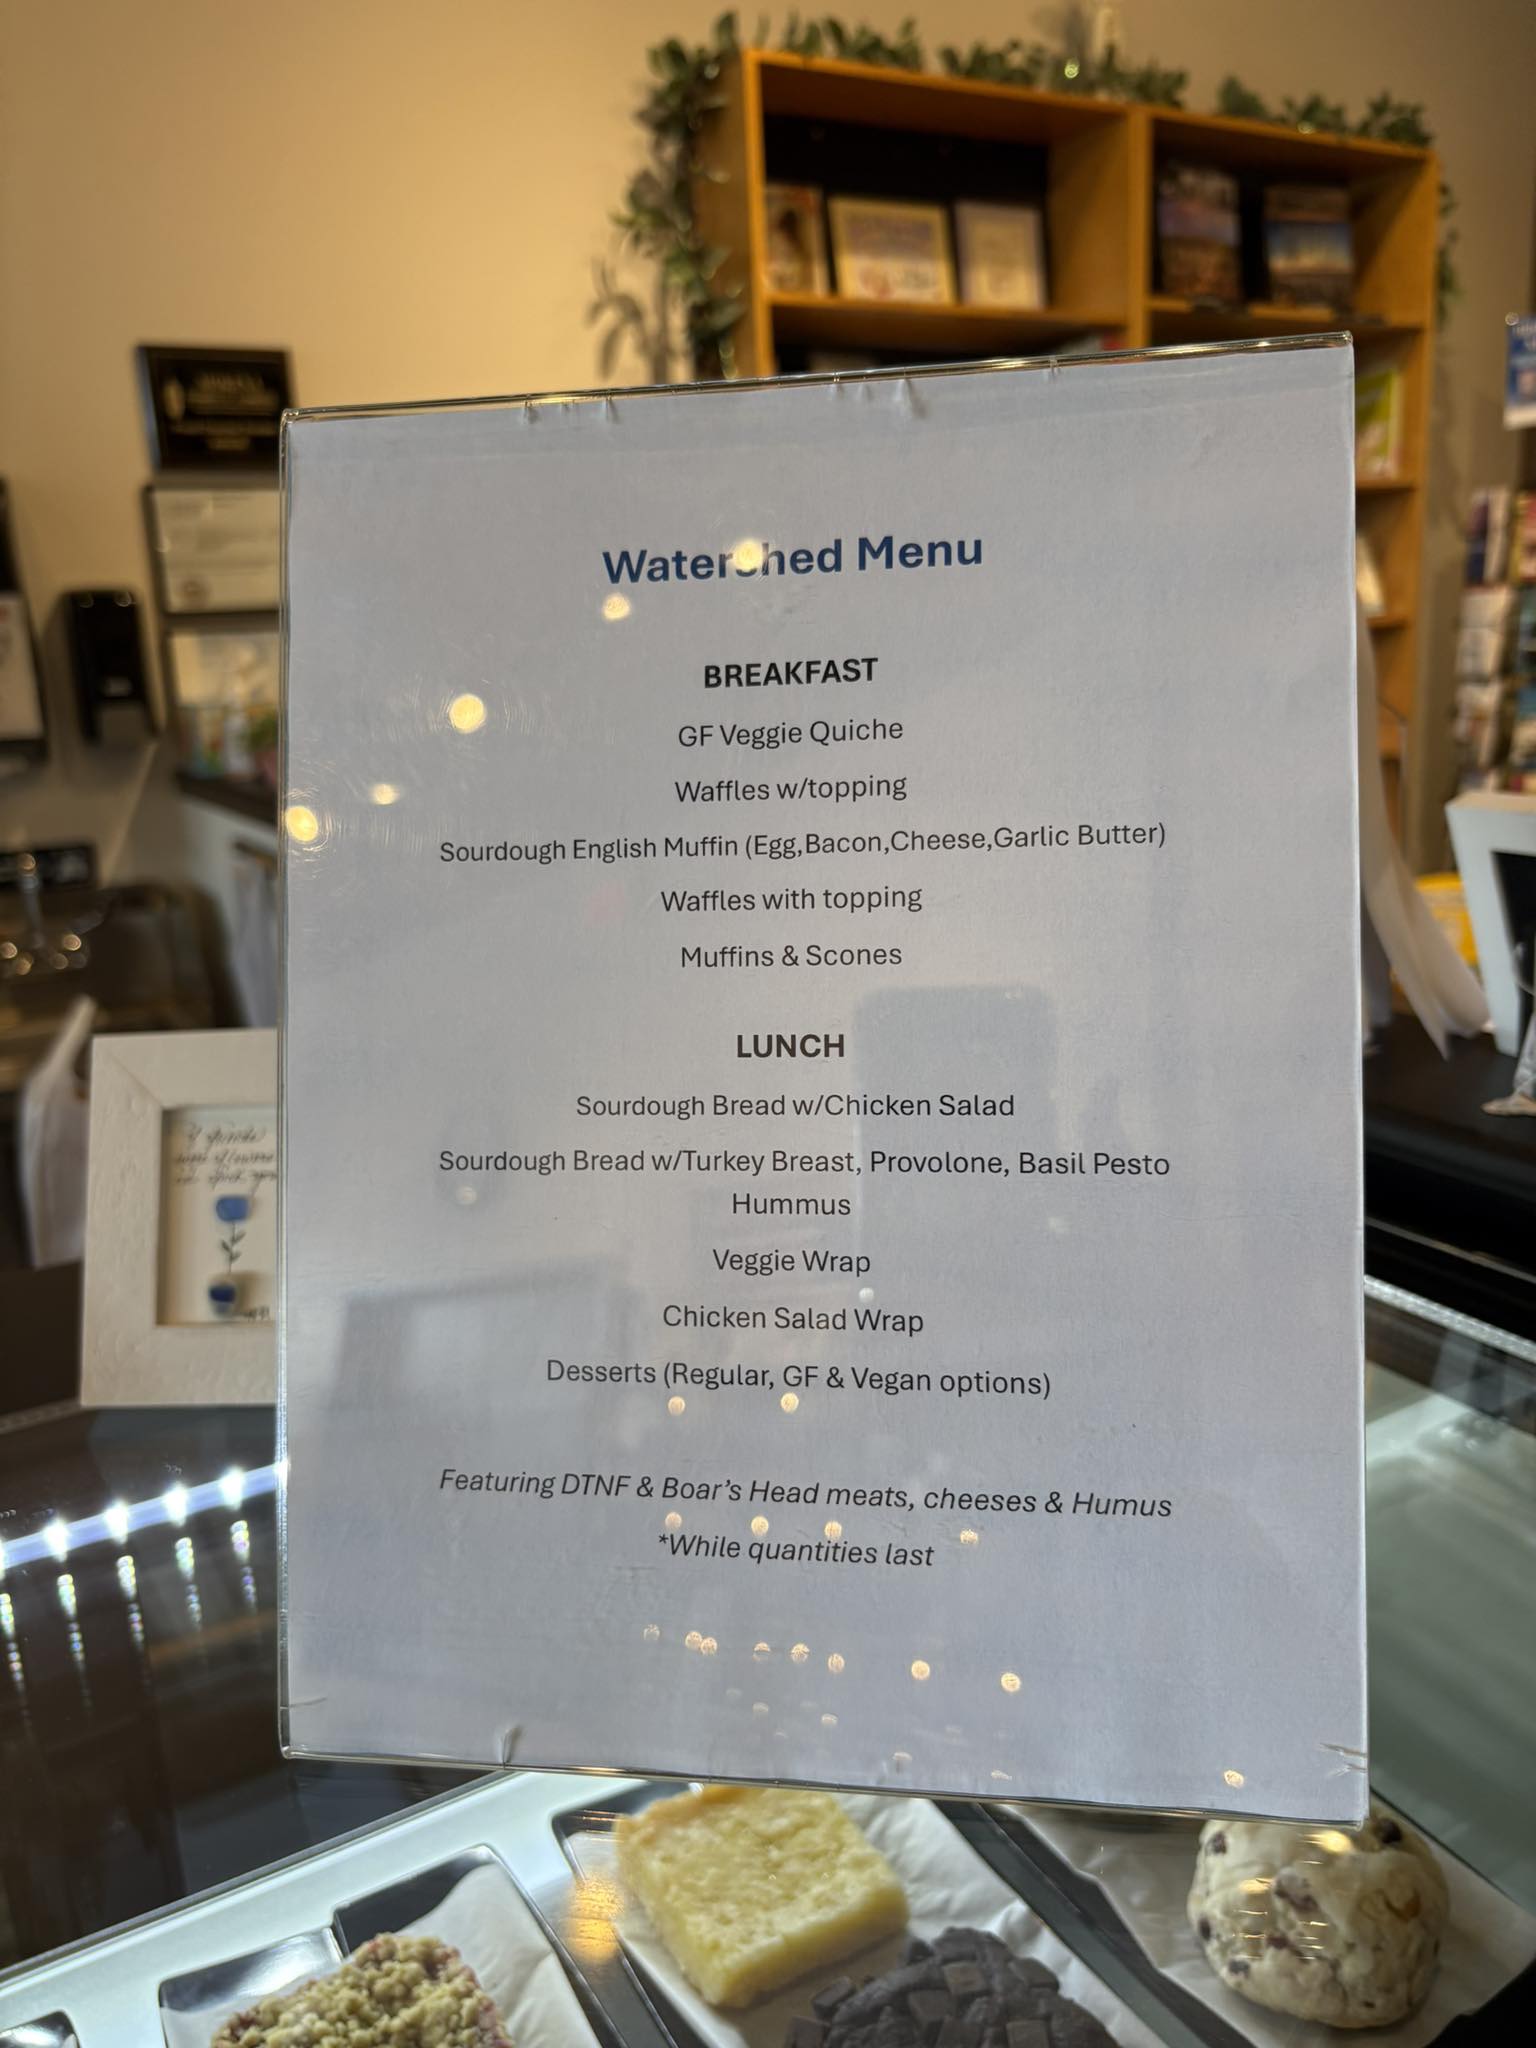 Watershed Menu
BREAKFAST
GF Veggie Quiche
Waffles w/topping
Sourdough English Muffin (Egg,Bacon,Cheese,Garlic Butter)
Waffles with topping
Muffins & Scones
LUNCH
Sourdough Bread w/Chicken Salad
Sourdough Bread w/Turkey Breast, Provolone, Basil Pesto
Hummus
Veggie Wrap
Chicken Salad Wrap
Desserts (Regular, GF & Vegan options)
Featuring DTNF & Boar's Head meats, cheeses & Humus
*While quantities last